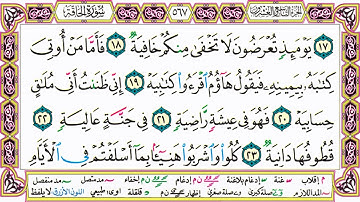 الجزء التاسع والعشرون ٥٦٧ سُورَةُ الْحَاقَّةِ
١٧ يَوْمَئِذٍ تُعْرَضُونَ لَا تَخْفَىٰ مِنكُمْ خَافِيَةٌ ١٨ فَأَمَّا مَنْ أُوتِيَ
كِتَٰبَهُۥ بِيَمِينِهِۦ فَيَقُولُ هَآؤُمُ ٱقْرَءُوا۟ كِتَٰبِيَهْ ١٩ إِنِّي ظَنَنتُ أَنِّي مُلَٰقٍ
حِسَابِيَهْ ٢٠ فَهُوَ فِي عِيشَةٍ رَّاضِيَةٍ ٢١ فِي جَنَّةٍ عَالِيَةٍ ٢٢
قُطُوفُهَا دَانِيَةٌ ٢٣ كُلُوا۟ وَٱشْرَبُوا۟ هَنِيٓـًٔۢا بِمَآ أَسْلَفْتُمْ فِي ٱلْأَيَّامِ